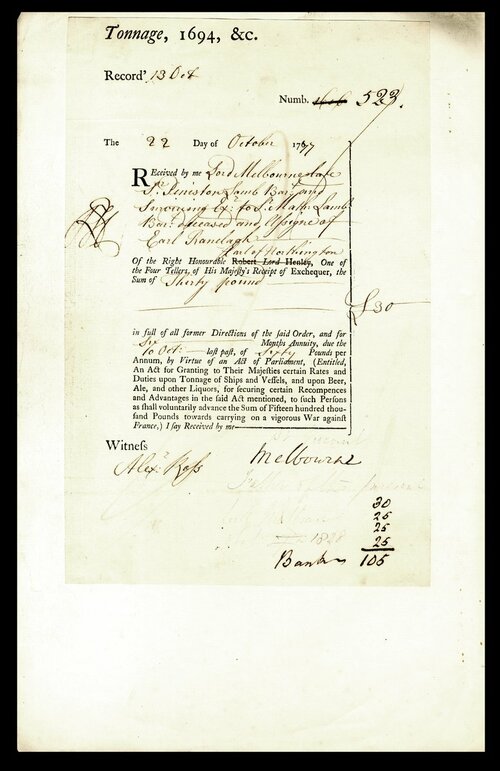 Tonnage, 1694, &c.
Record' 13 Oct
Numb. 523.
The 22 Day of October 1777
Received by me Lord Melbourne late
Sr. Peniston Lamb Bart. and
Surviving Exr. to Sr. Mattw. Lamb
Bart. deceased and Assignee of
Earl Ranelagh
Earl of Northington
Of the Right Honourable Robert Lord Henley, One of
the Four Tellers, of His Majesty's Receipt of Exchequer, the
Sum of Thirty pound
£30
in full of all former Directions of the said Order, and for
Six Months Annuity, due the
10 Octr. last past, of Sixty Pounds per
Annum, by Virtue of an Act of Parliament, (Entitled,
An Act for Granting to Their Majesties certain Rates and
Duties upon Tonnage of Ships and Vessels, and upon Beer,
Ale, and other Liquors, for securing certain Recompences
and Advantages in the said Act mentioned, to such Persons
as shall voluntarily advance the Sum of Fifteen hundred thou-
sand Pounds towards carrying on a vigorous War against
France,) I say Received by me
Witness
Melbourne
Alexr. Ross
30
25
25
25
Bank 105